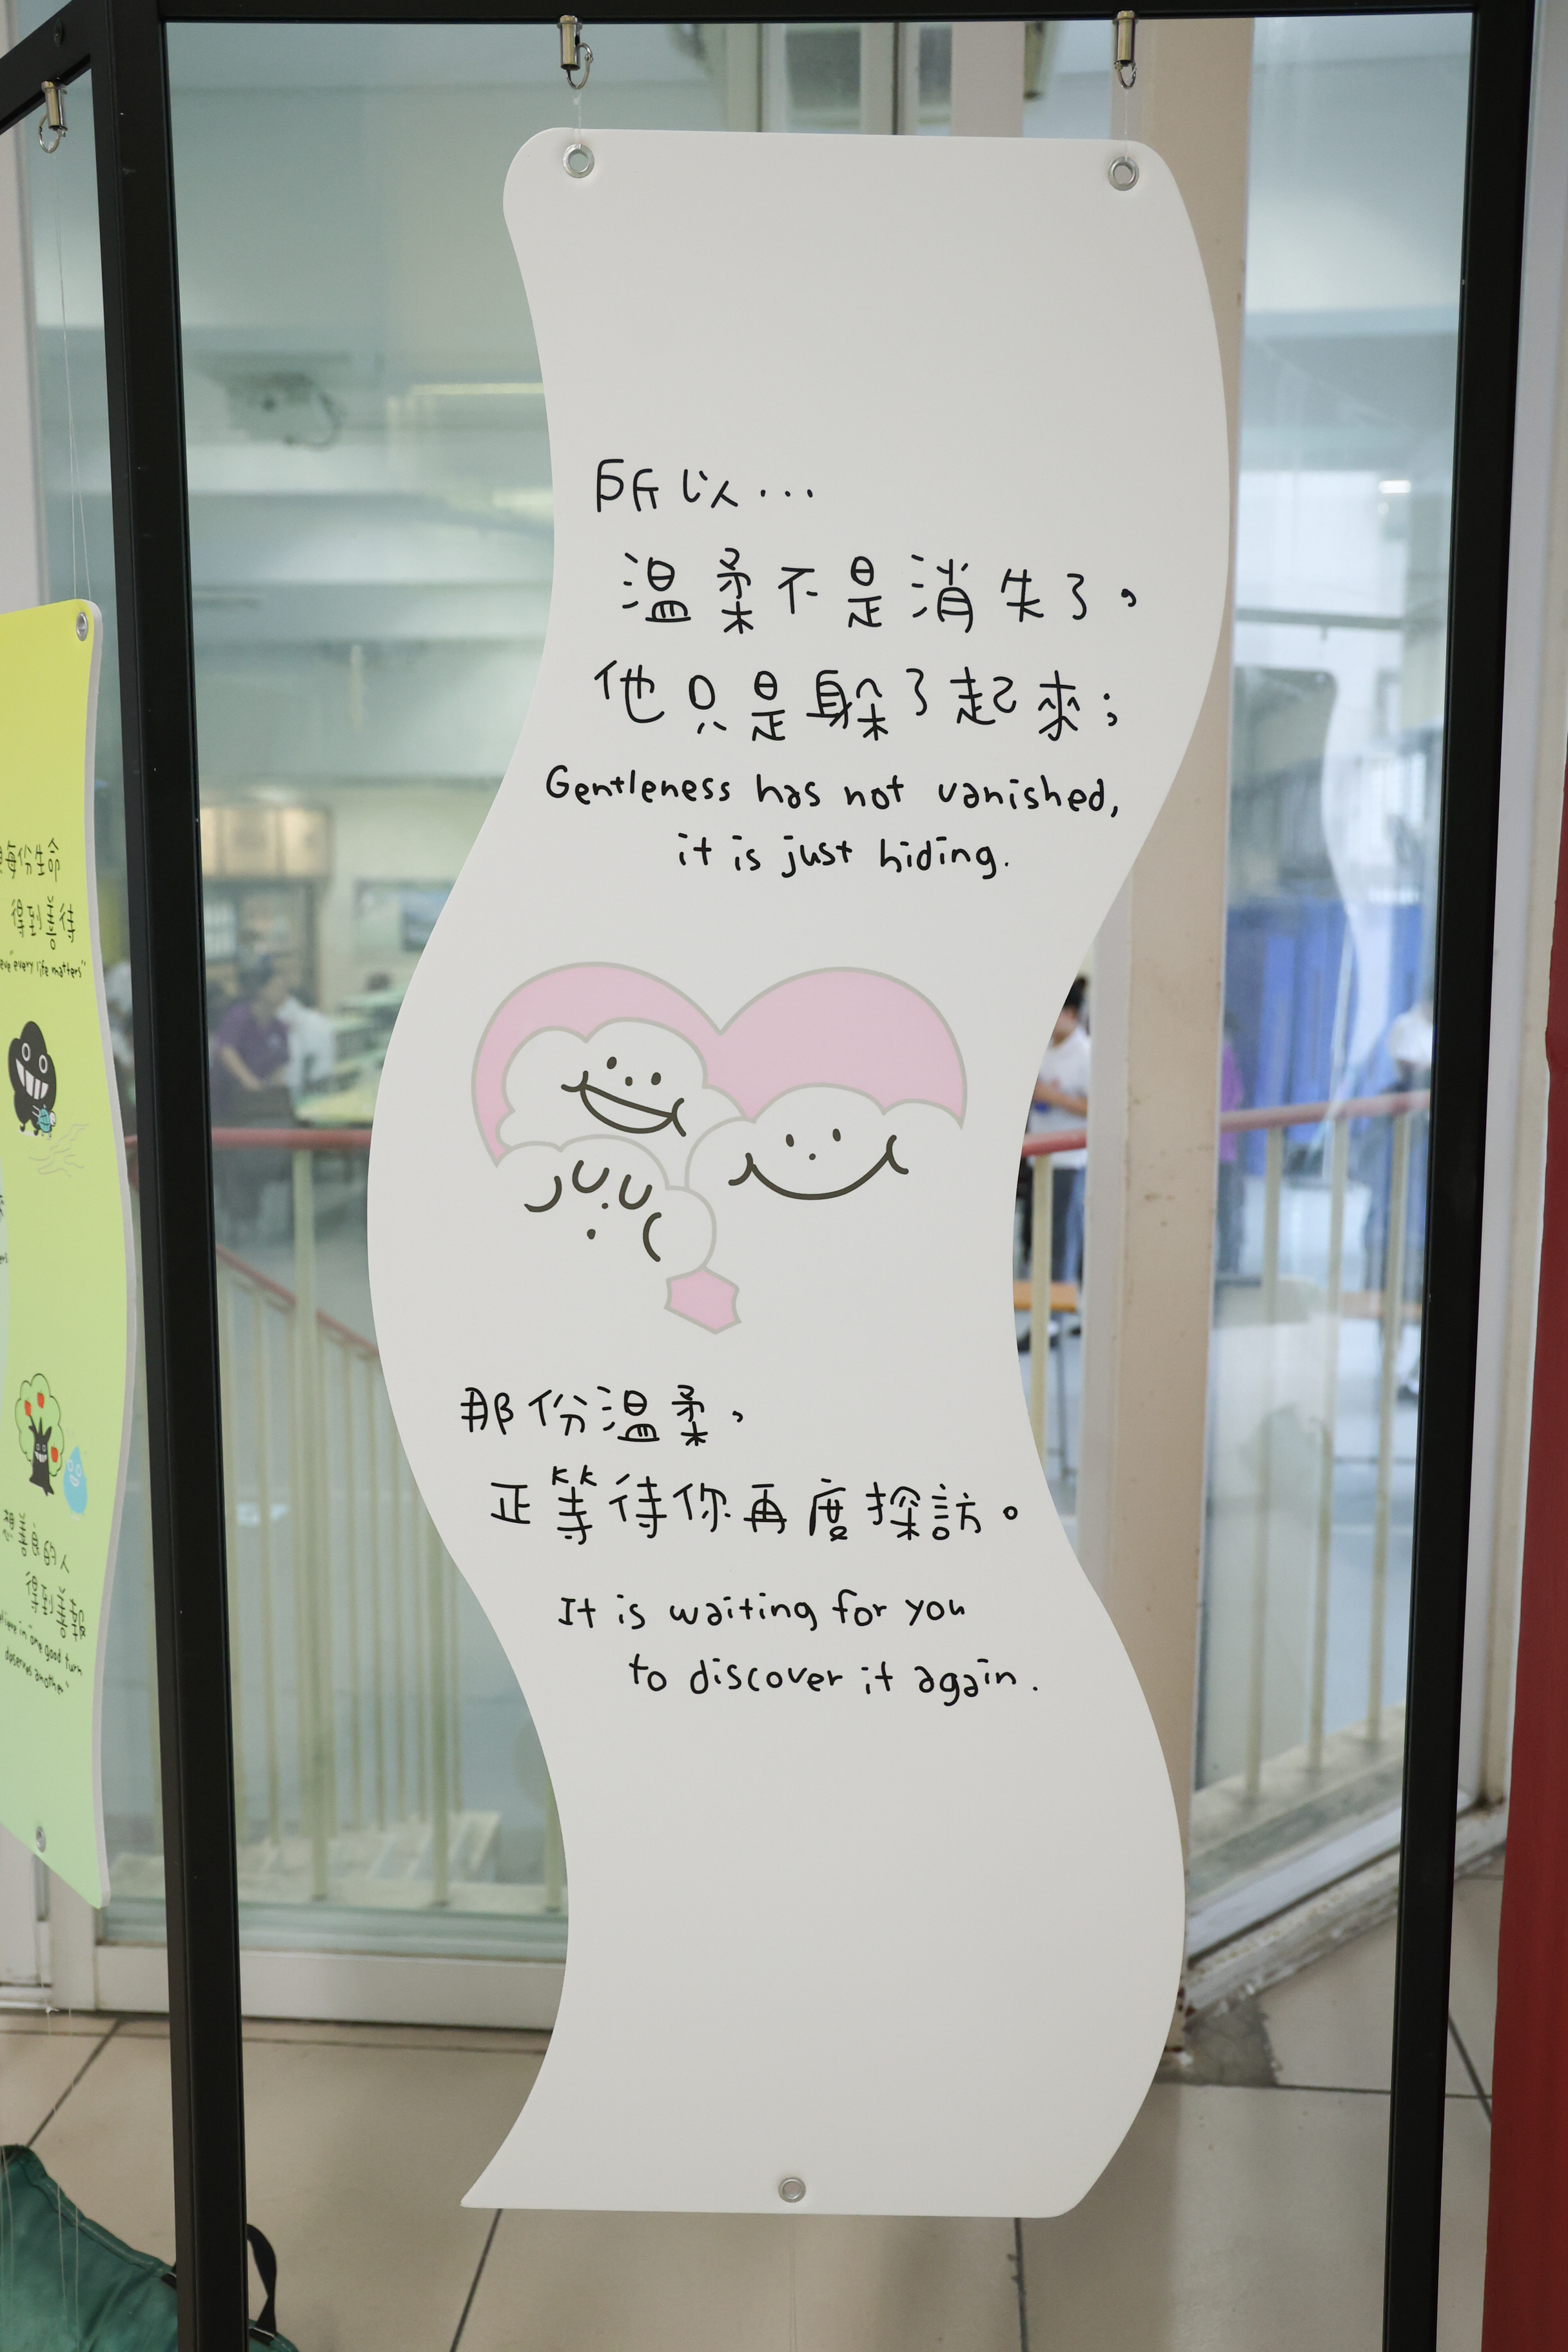 所以...
溫柔不是消失了，
他只是躲了起來；
Gentleness has not vanished,
it is just hiding.
那份溫柔，
正等待你再度探訪。
It is waiting for you
to discover it again.
每份生命
得到善待
"every life matters"
善良的人
得到善報
in "one good turn
deserves another"